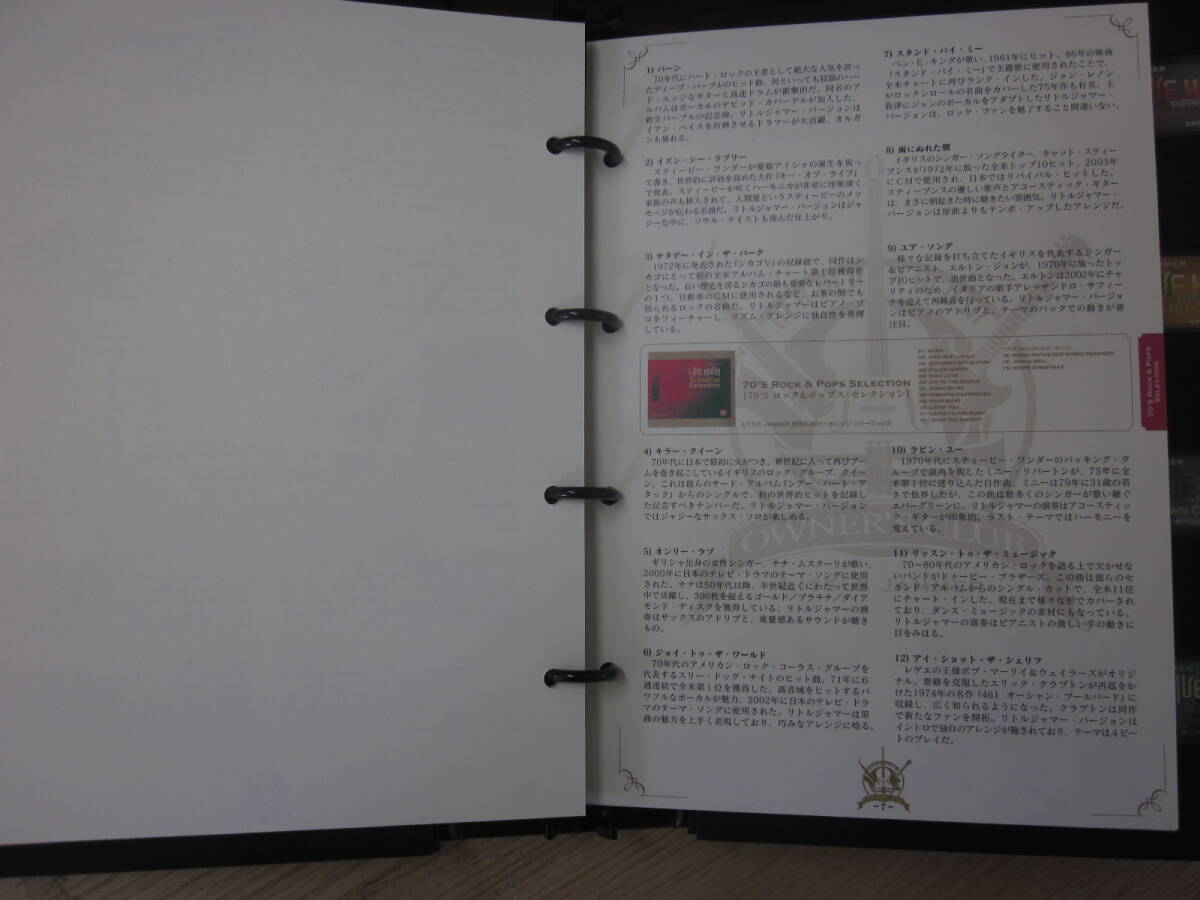 1) バーン
70年代にハード・ロックの王者として絶大な人気を誇っ
たディープ・パープルのヒット曲。何といっても冒頭のハー
ド・エッジなギターと高速ドラムが衝撃的だ。同名のア
ルバムはボーカルのデビッド・カバーデルが加入した、
新生パープルの記念碑。リトルジャマー・バージョンは
イアン・ペイスを彷彿させるドラマーが大活躍。オルガ
ンも暴れる。
2) イズン・シー・ラブリー
スティービー・ワンダーが愛娘アイシャの誕生を祝っ
て書き、世界的に評価を高めた大作『キー・オブ・ライフ』
で発表。スティービーが吹くハーモニカが非常に印象深く、
家族の声も挿入されて、人間愛というスティービーのメッ
セージが伝わる名曲だ。リトルジャマー・バージョンはジャ
ジーな中に、ソウル・テイストも滲んだ仕上がり。
3) サタデー・イン・ザ・パーク
1972年に発表された『シカゴV』の収録曲で、同作はシ
カゴにとって初の全米アルバム・チャート第1位獲得作
となった。長い歴史を誇るシカゴの最も重要なレパートリー
の1つ。自動車のCMに使用されるなど、お茶の間でも
知られるロックの名曲だ。リトルジャマーはピアノ・ソ
ロをフィーチャーし、リズム・アレンジに独自性を発揮
している。
70'S ROCK & POPS SELECTION
[70'S ロック&ポップス・セレクション]
4) キラー・クイーン
70年代に日本で最初に火がつき、新世紀に入って再びブー
ムを巻き起こしているイギリスのロック・グループ、クイー
ン。これは彼らのサード・アルバム『シアー・ハート・ア
タック』からのシングルで、初の世界的ヒットを記録し
た記念すべきナンバーだ。リトルジャマー・バージョン
ではジャジーなサックス・ソロが楽しめる。
5) オンリー・ラブ
ギリシャ出身の女性シンガー、ナナ・ムスクーリが歌い、
2000年に日本のテレビ・ドラマのテーマ・ソングに使用
された。ナナは50年代以降、半世紀近くにわたって世界
中で活躍し、300枚を超えるゴールド/プラチナ/ダイア
モンド・ディスクを獲得している。リトルジャマーの演
奏はサックスのアドリブと、重量感あるサウンドが聴き
もの。
6) ジョイ・トゥ・ザ・ワールド
70年代のアメリカン・ロック・コーラス・グループを
代表するスリー・ドッグ・ナイトのヒット曲。71年に6
週連続で全米第1位を獲得した。高音域をヒットするパ
ワフルなボーカルが魅力。2002年に日本のテレビ・ドラ
マのテーマ・ソングに使用された。リトルジャマーは原
曲の魅力を上手く表現しており、巧みなアレンジに唸る。
7) スタンド・バイ・ミー
ベン・E・キングが歌い、1961年にヒット。86年の映画
『スタンド・バイ・ミー』で主題歌に使用されたことで、
全米チャートに再びランク・インした。ジョン・レノン
がロックンロールの名曲をカバーした75年作も有名。主
旋律にジョンのボーカルをアダプトしたリトルジャマー・
バージョンは、ロック・ファンを魅了すること間違いない。
8) 雨にぬれた朝
イギリスのシンガー・ソングライター、キャット・スティー
ブンスが1972年に放った全米トップ10ヒット。2003年
にCMで使用され、日本ではリバイバル・ヒットした。
スティーブンスの優しい歌声とアコースティック・ギター
は、まさに朝起きた時に聴きたい雰囲気。リトルジャマー・
バージョンは原曲よりもテンポ・アップしたアレンジだ。
9) ユア・ソング
様々な記録を打ち立てたイギリスを代表するシンガー
&ピアニスト、エルトン・ジョンが、1970年に放ったトッ
プ10ヒットで、出世曲となった。エルトンは2002年にチャ
リティのため、イタリアの歌手アレッサンドロ・サフィー
ナを迎えて再録音を行っている。リトルジャマー・バージョ
ンはピアノのアドリブと、テーマのバックでの動きが要
注目。
70'S ROCK & POPS
SELECTION
10) ラビン・ユー
1970年代にスティービー・ワンダーのバッキング・グ
ループで頭角を現したミニー・リパートンが、75年に全
米第1位に送り込んだ自作曲。ミニーは79年に31歳の若
さで他界したが、この曲は数多くのシンガーが歌い継ぐ
エバーグリーンに。リトルジャマーの演奏はアコースティッ
ク・ギターが印象的。ラスト・テーマではハーモニーを
変えている。
OWNER'S CLUB
11) リッスン・トゥ・ザ・ミュージック
70〜80年代のアメリカン・ロックを語る上で欠かせな
いバンドがドゥービー・ブラザーズ。この曲は彼らのセ
カンド・アルバムからのシングル・カットで、全米11位
にチャート・インした。現在まで様々な形でカバーされ
ており、ダンス・ミュージックの素材にもなっている。
リトルジャマーの演奏はピアニストの激しい手の動きに
目をみはる。
12) アイ・ショット・ザ・シェリフ
レゲエの王様ボブ・マーリイ&ウェイラーズがオリジ
ナル。悪癖を克服したエリック・クラプトンが再起をか
けた1974年の名作『461 オーシャン・ブールバード』に
収録し、広く知られるようになった。クラプトンは同作
で新たなファンを開拓。リトルジャマー・バージョンは
イントロで独自のアレンジが施されており、テーマは4ビー
トのプレイだ。
-7-